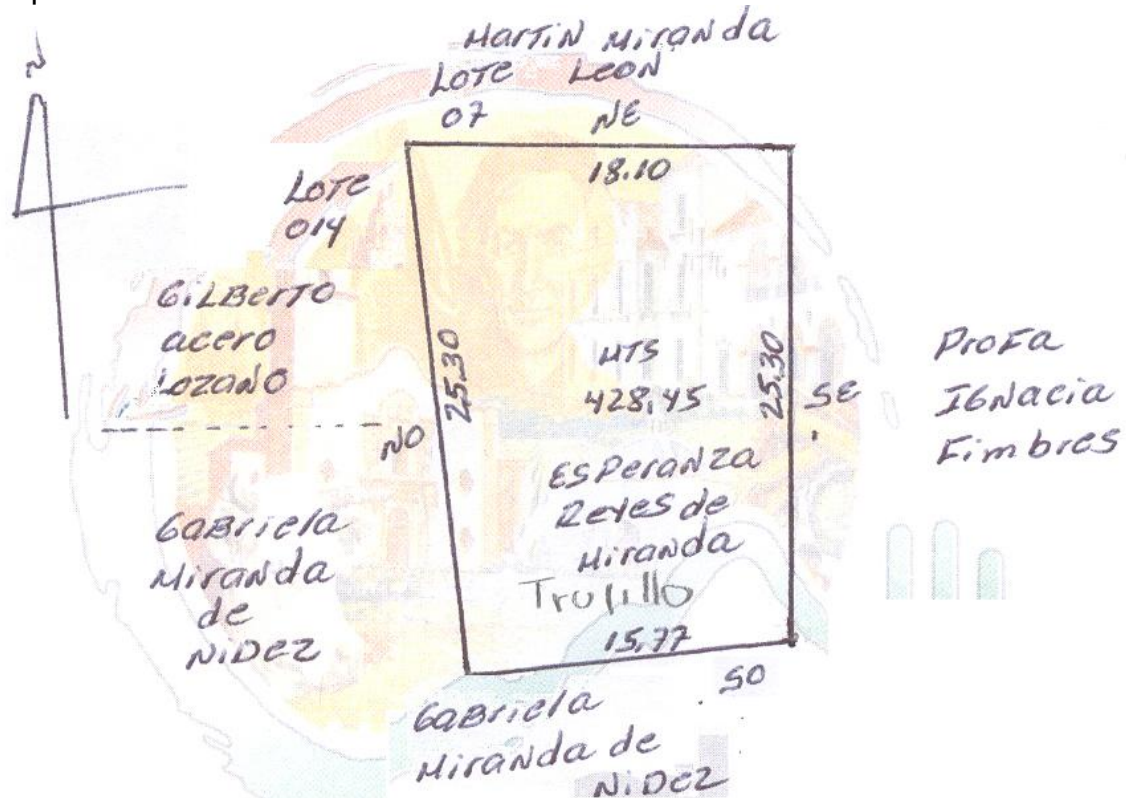 N
Martin Miranda
Lote Leon
07 NE
18.10
Lote
014
Gilberto
acero
Lozano
25.30
NO
MTS
428,45
25.30
SE
Profa
Ignacia
Fimbres
Esperanza
Reyes de
Miranda
Trujillo
15,77
SO
Gabriela
Miranda
de
NiDez
Gabriela
Miranda de
NiDez